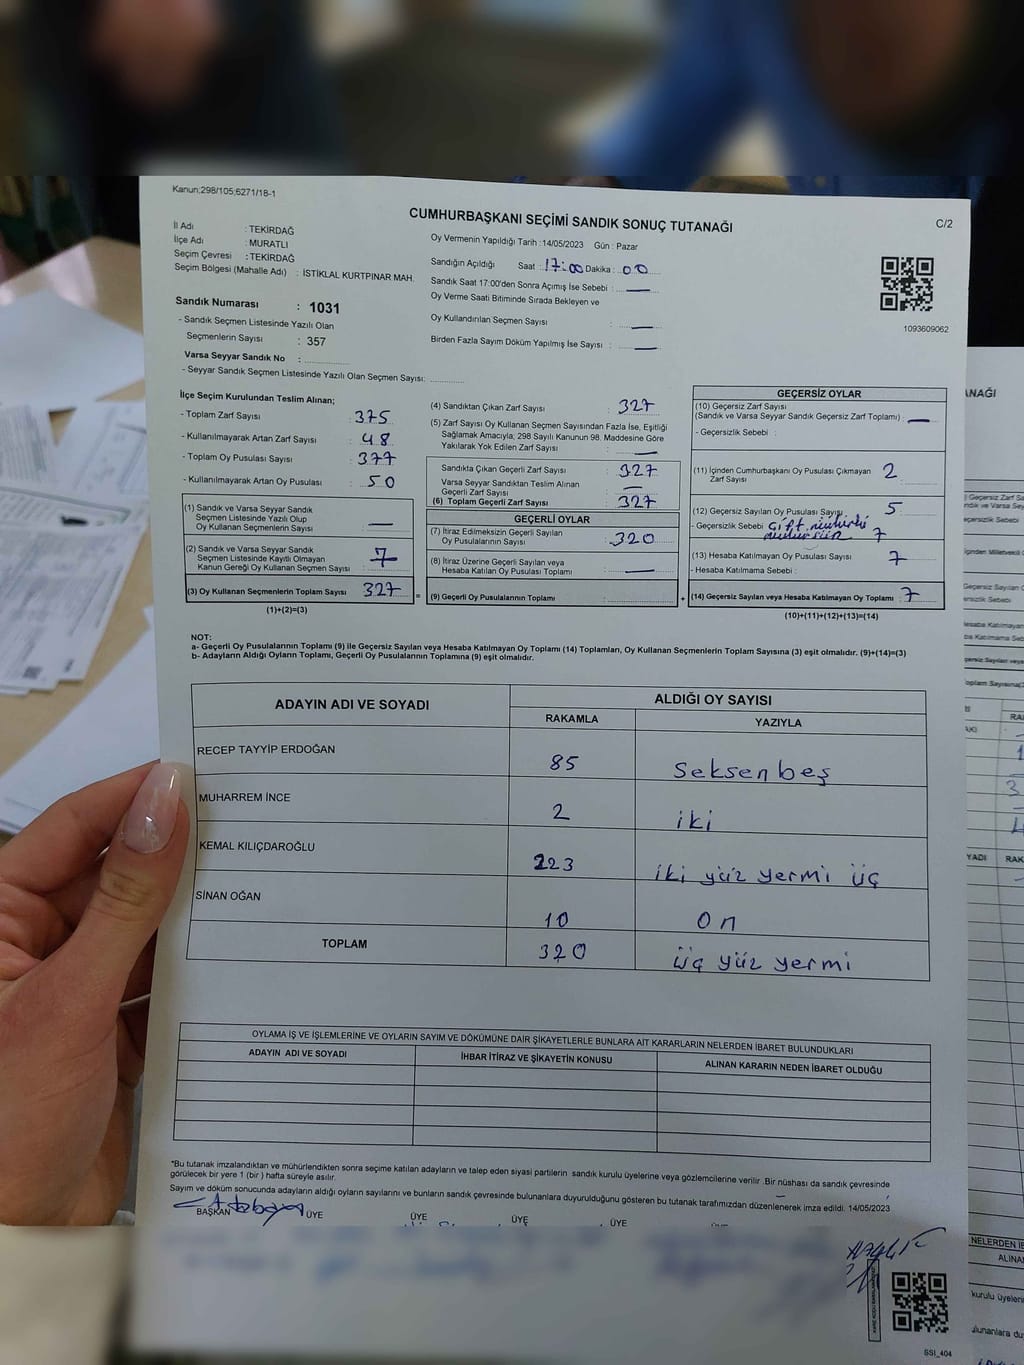 Kanun:298/105;6271/18-1
CUMHURBAŞKANI SEÇİMİ SANDIK SONUÇ TUTANAĞI
C/2
İl Adı : TEKİRDAĞ
İlçe Adı : MURATLI
Seçim Çevresi : TEKİRDAĞ
Seçim Bölgesi (Mahalle Adı) : İSTİKLAL KURTPINAR MAH.
Sandık Numarası : 1031
- Sandık Seçmen Listesinde Yazılı Olan
Seçmenlerin Sayısı : 357
Varsa Seyyar Sandık No :
- Seyyar Sandık Seçmen Listesinde Yazılı Olan Seçmen Sayısı:
Oy Vermenin Yapıldığı Tarih :14/05/2023 Gün : Pazar
Sandığın Açıldığı Saat : 17:00 Dakika : 00
Sandık Saat 17:00'den Sonra Açımış İse Sebebi : —
Oy Verme Saati Bitiminde Sırada Bekleyen ve
Oy Kullandırılan Seçmen Sayısı : —
Birden Fazla Sayım Döküm Yapılmış İse Sayısı : —
1093609062
İlçe Seçim Kurulundan Teslim Alınan;
- Toplam Zarf Sayısı : 375
- Kullanılmayarak Artan Zarf Sayısı : 48
- Toplam Oy Pusulası Sayısı : 377
- Kullanılmayarak Artan Oy Pusulası : 50
(1) Sandık ve Varsa Seyyar Sandık
Seçmen Listesinde Yazılı Olup
Oy Kullanan Seçmenlerin Sayısı : —
(2) Sandık ve Varsa Seyyar Sandık
Seçmen Listesinde Kayıtlı Olmayan
Kanun Gereği Oy Kullanan Seçmen Sayısı : 7
(3) Oy Kullanan Seçmenlerin Toplam Sayısı 327
(1)+(2)=(3)
(4) Sandıktan Çıkan Zarf Sayısı : 327
(5) Zarf Sayısı Oy Kullanan Seçmen Sayısından Fazla İse, Eşitliği
Sağlamak Amacıyla; 298 Sayılı Kanunun 98. Maddesine Göre
Yakılarak Yok Edilen Zarf Sayısı : —
Sandıkla Çıkan Geçerli Zarf Sayısı : 327
Varsa Seyyar Sandıktan Teslim Alınan
Geçerli Zarf Sayısı : —
(6) Toplam Geçerli Zarf Sayısı : 327
GEÇERLİ OYLAR
(7) İtiraz Edilmeksizin Geçerli Sayılan
Oy Pusulalarının Sayısı : 320
(8) İtiraz Üzerine Geçerli Sayılan veya
Hesaba Katılan Oy Pusulası Toplamı : —
= (9) Geçerli Oy Pusulalarının Toplamı : +
GEÇERSİZ OYLAR
(10) Geçersiz Zarf Sayısı
(Sandık ve Varsa Seyyar Sandık Geçersiz Zarf Toplamı) : —
- Geçersizlik Sebebi :
(11) İçinden Cumhurbaşkanı Oy Pusulası Çıkmayan 2
Zarf Sayısı
(12) Geçersiz Sayılan Oy Pusulası Sayısı : 5
- Geçersizlik Sebebi çift mühürlü
7
(13) Hesaba Katılmayan Oy Pusulası Sayısı : 7
- Hesaba Katılmama Sebebi :
(14) Geçersiz Sayılan veya Hesaba Katılmayan Oy Toplamı : 7
(10)+(11)+(12)+(13)=(14)
NOT:
a- Geçerli Oy Pusulalarının Toplamı (9) ile Geçersiz Sayılan veya Hesaba Katılmayan Oy Toplamı (14) Toplamları, Oy Kullanan Seçmenlerin Toplam Sayısına (3) eşit olmalıdır. (9)+(14)=(3)
b- Adayların Aldığı Oyların Toplamı, Geçerli Oy Pusulalarının Toplamına (9) eşit olmalıdır.
ADAYIN ADI VE SOYADI ALDIĞI OY SAYISI
RAKAMLA YAZIYLA
RECEP TAYYİP ERDOĞAN 85 Seksenbeş
MUHARREM İNCE 2 iki
KEMAL KILIÇDAROĞLU 223 iki yüz yermi üç
SİNAN OĞAN 10 on
TOPLAM 320 üç yüz yermi
OYLAMA İŞ VE İŞLEMLERİNE VE OYLARIN SAYIM VE DÖKÜMÜNE DAİR ŞİKAYETLERLE BUNLARA AİT KARARLARIN NELERDEN İBARET BULUNDUKLARI
ADAYIN ADI VE SOYADI İHBAR İTİRAZ VE ŞİKAYETİN KONUSU ALINAN KARARIN NEDEN İBARET OLDUĞU
*Bu tutanak imzalandıktan ve mühürlendikten sonra seçime katılan adayların ve talep eden siyasi partilerin sandık kurulu üyelerine veya gözlemcilerine verilir .Bir nüshası da sandık çevresinde
görülecek bir yere 1 (bir ) hafta süreyle asılır.
Sayım ve döküm sonucunda adayların aldığı oyların sayılarını ve bunların sandık çevresinde bulunanlara duyurulduğunu gösteren bu tutanak tarafımızdan düzenlenerek imza edildi. 14/05/2023
BAŞKAN ÜYE ÜYE ÜYE ÜYE
SSI_404